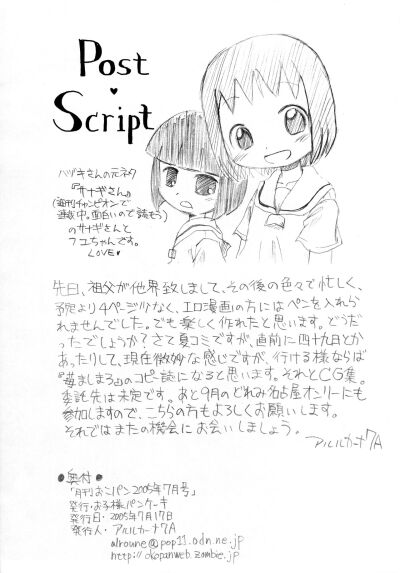 Post
Script
ハヅキさんの元ネタ
『サナギさん』
(週刊チャンピオンで
連載中。面白いので読もう)
のサナギさんと
フユちゃんです。
LOVE♥
先日、祖父が他界致しまして、その後の色々で忙しく、
予定より4ページ少なく、エロ漫画の方にはペンを入れら
れませんでした。でも楽しく作れたと思います。どうだ
ったでしょうか?さて夏コミですが、直前に四十九日とか
あったりして、現在微妙な感じですが、行ける様ならば
『苺ましまろ』のコピー誌になると思います。それとCG集。
委託先は未定です。あと9月のどれみ名古屋オンリーにも
参加しますので、こちらの方もよろしくお願いします。
それではまたの機会にお会いしましょう。
アルルカーナ7A
●奥付●
「月刊おこパン2005年7月号」
発行・お子様パンケーキ
発行日・2005年7月17日
発行人・アルルカーナ7A
alroune@pop11.odn.ne.jp
http://okopanweb.zombie.jp